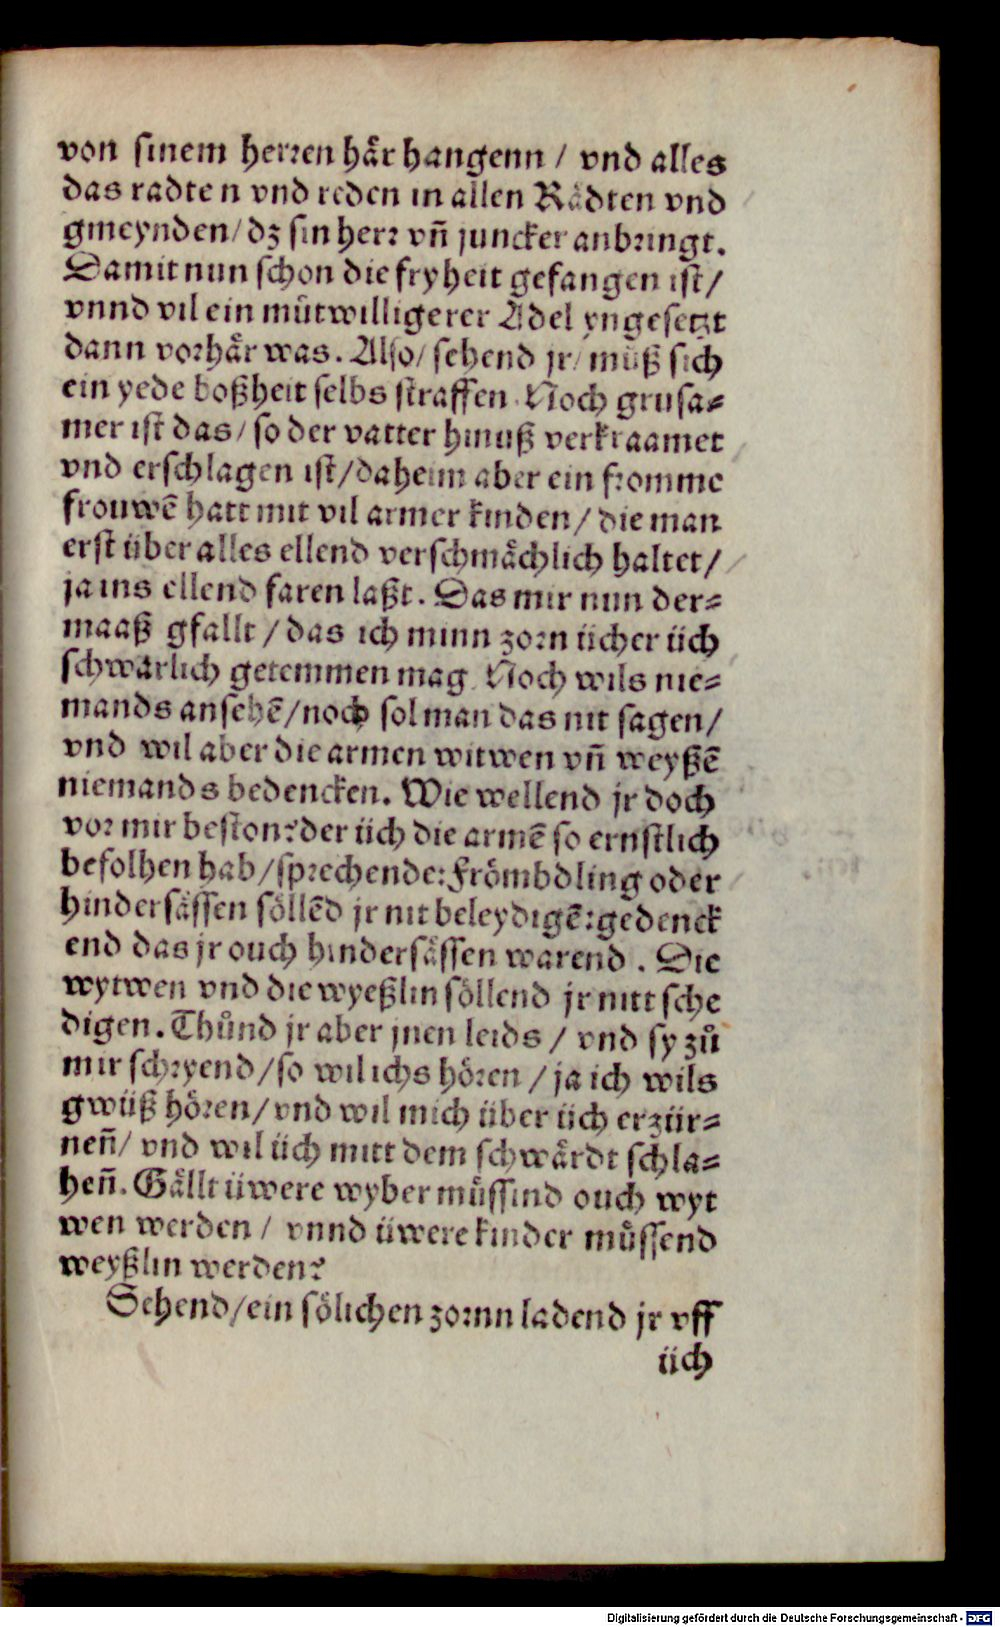 von sinem herren här hangenn / vnd alles
das radten vnd reden in allen Rädten vnd
gmeynden / dz sin herr vñ juncker anbringt.
Damit nun schon die fryheit gefangen ist /
vnnd vil ein můtwilligerer Adel yngesetzt
dann vorhär was. Also / sehend jr / můß sich
ein yede boßheit selbs straffen. Noch grusa⸗
mer ist das / so der vatter hinuß verkraamet
vnd erschlagen ist / daheim aber ein fromme
frouwē hatt mit vil armer kinden / die man
erst über alles ellend verschmächlich haltet /
ja ins ellend faren laßt. Das mir nun der⸗
maaß gfallt / das ich minn zorn üch er üch
schwärlich getemmen mag. Noch wils nie⸗
mands ansehē / noch sol man das nit sagen /
vnd wil aber die armen witwen vñ weyßē
niemands bedencken. Wie wellend jr doch
vor mir beston? der üch die armē so ernstlich
befolhen hab / sprechende: Frömbdling oder
hindersässen söllēd jr nit beleydigē: gedenck
end das jr ouch hindersässen warend. Die
wytwen vnd die wyeßlin söllend jr nitt sche
digen. Thůnd jr aber jnen leids / vnd sy zů
mir schryend / so wil ichs hören / ja ich wils
gwüß hören / vnd wil mich über üch erzür⸗
neñ / vnd wil üch mitt dem schwärdt schla⸗
heñ. Gällt üwere wyber müssind ouch wyt
wen werden / vnnd üwere kinder müssend
weyßlin werden?
Sehend / ein sölichen zornn ladend jr vff
üch
Digitalisierung gefördert durch die Deutsche Forschungsgemeinschaft - DFG